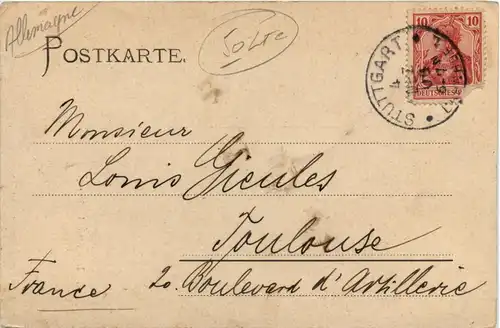 Allemagne
POSTKARTE.
10 10
DEUTSCHES
STUTTGART
Monsieur
Louis Gicules
Toulouse
France 20 Boulevard d'Artillerie